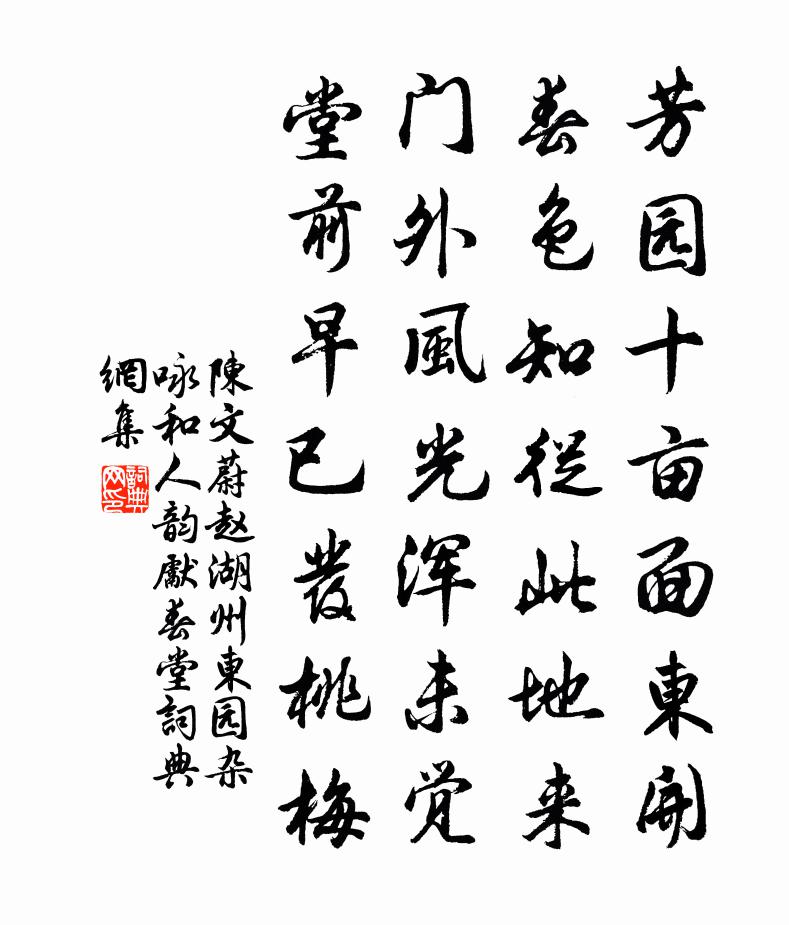 芳园十亩面東開
春色知從此地来
门外風光浑未觉
堂前早已發桃梅
陳文蔚赵湖州東园杂
咏和人韵獻春堂詞典
網集
詞典
网印